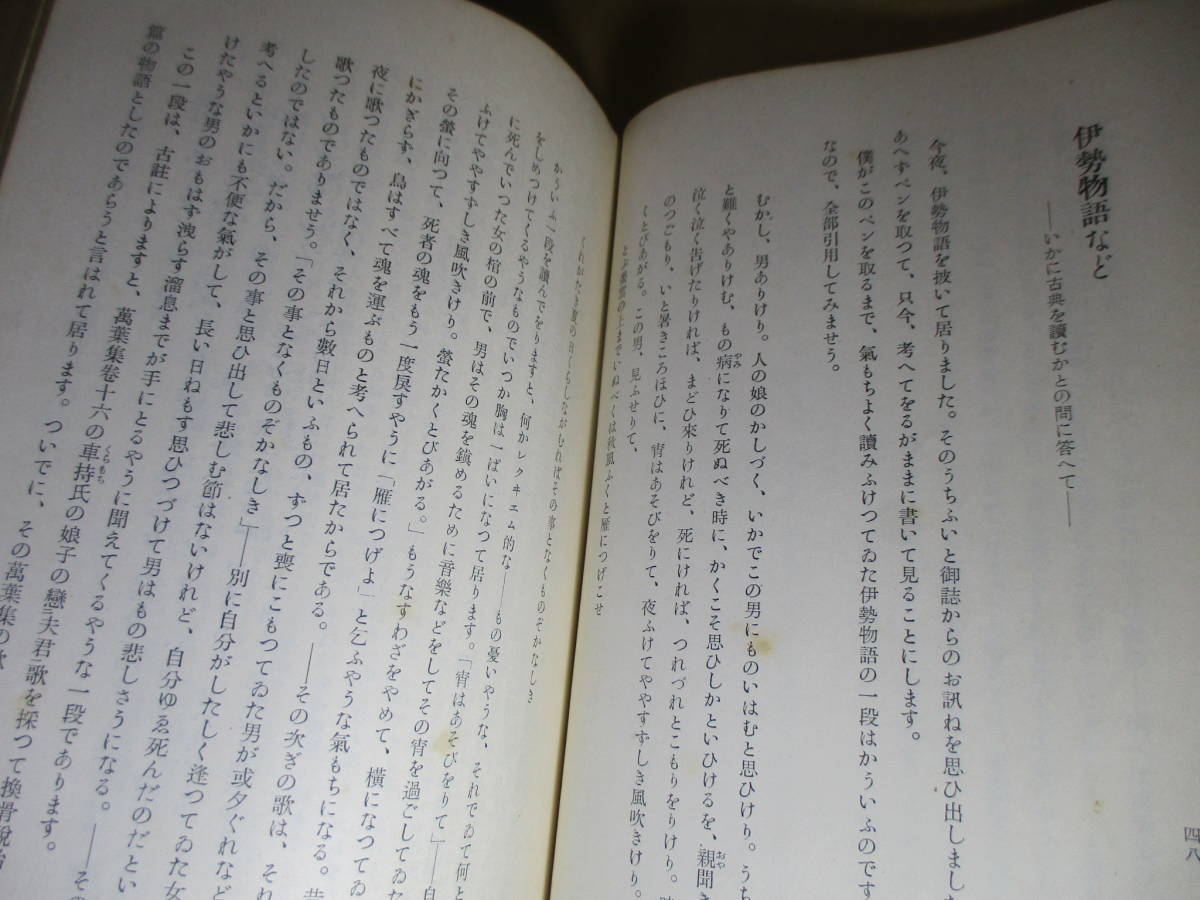 伊勢物語など
――いかに古典を讀むかとの問に答へて――
今夜、伊勢物語を披いて居りました。そのうちふいと御誌からのお訊ねを思ひ出しました
あへずペンを取つて、只今、考へてをるがままに書いて見ることにします。
僕がこのペンを取るまで、氣もちよく讀みふけつてゐた伊勢物語の一段はかういふのです
なので、全部引用してみませう。
むかし、男ありけり。人の娘のかしづく、いかでこの男にものいはむと思ひけり。うち
と難くやありけむ、もの病になりて死ぬべき時に、かくこそ思ひしかといひけるを、親聞き
泣く泣く告げたりければ、まどひ來りけれど、死にければ、つれづれとこもりをりけり。
のつごもり、いと暑きころほひに、宵はあそびをりて、夜ふけてやや すずしき風吹きけり。
くとびあがる。この男、見ふせりて、
とぶ螢雲の上までいぬべくは秋風ふくと雁につげこせ
くれがたき夏の日ぐらしながむればその事となくものぞかなしき
かういふ一段を讀んでをりますと、何かレクヰエム的な――もの憂いやうな、それでゐて何と
をしめつけてくるやうなものでいつか胸は一ぱいになつて居ります。「宵はあそびをりて」――自
に死んでいつた女の棺の前で、男はその魂を鎭めるために音樂などをしてその宵を過ごしてゐた
ふけてややすずしき風吹きけり。螢たかくとびあがる。」もうなすわざをやめて、橫になつてゐ
その螢に向つて、死者の魂をもう一度戾すやうに「雁につげよ」と乞ふやうな氣もちになる。昔
にかぎらず、鳥はすべて魂を運ぶものと考へられて居たからである。――その次ぎの歌は、それ
夜に歌つたものではなく、それから數日といふもの、ずつと喪にこもつてゐた男が或夕ぐれなど
歌つたものでありませう。「その事となくものぞかなしき」――別に自分がしたしく逢つてゐた女
したのではない。だから、その事と思ひ出して悲しむ節はないけれど、自分ゆゑ死んだのだとい
考へるといかにも不便な氣がして、長い日ねもす思ひつづけて男はもの悲しさうになる。――そ
けたやうな男のおもはず洩らす溜息までが手にとるやうに聞えてくるやうな一段であります。
この一段は、古註によりますと、萬葉集卷十六の車持氏の娘子の戀夫君歌を採つて換骨脫胎
篇の物語としたのであらうと言はれて居ります。ついでに、その萬葉集の歌
四八